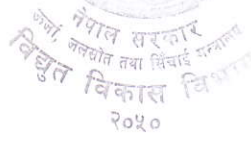 नेपाल सरकार
ऊर्जा, जलस्रोत तथा सिंचाई मन्त्रालय
विद्युत विकास
२०५०